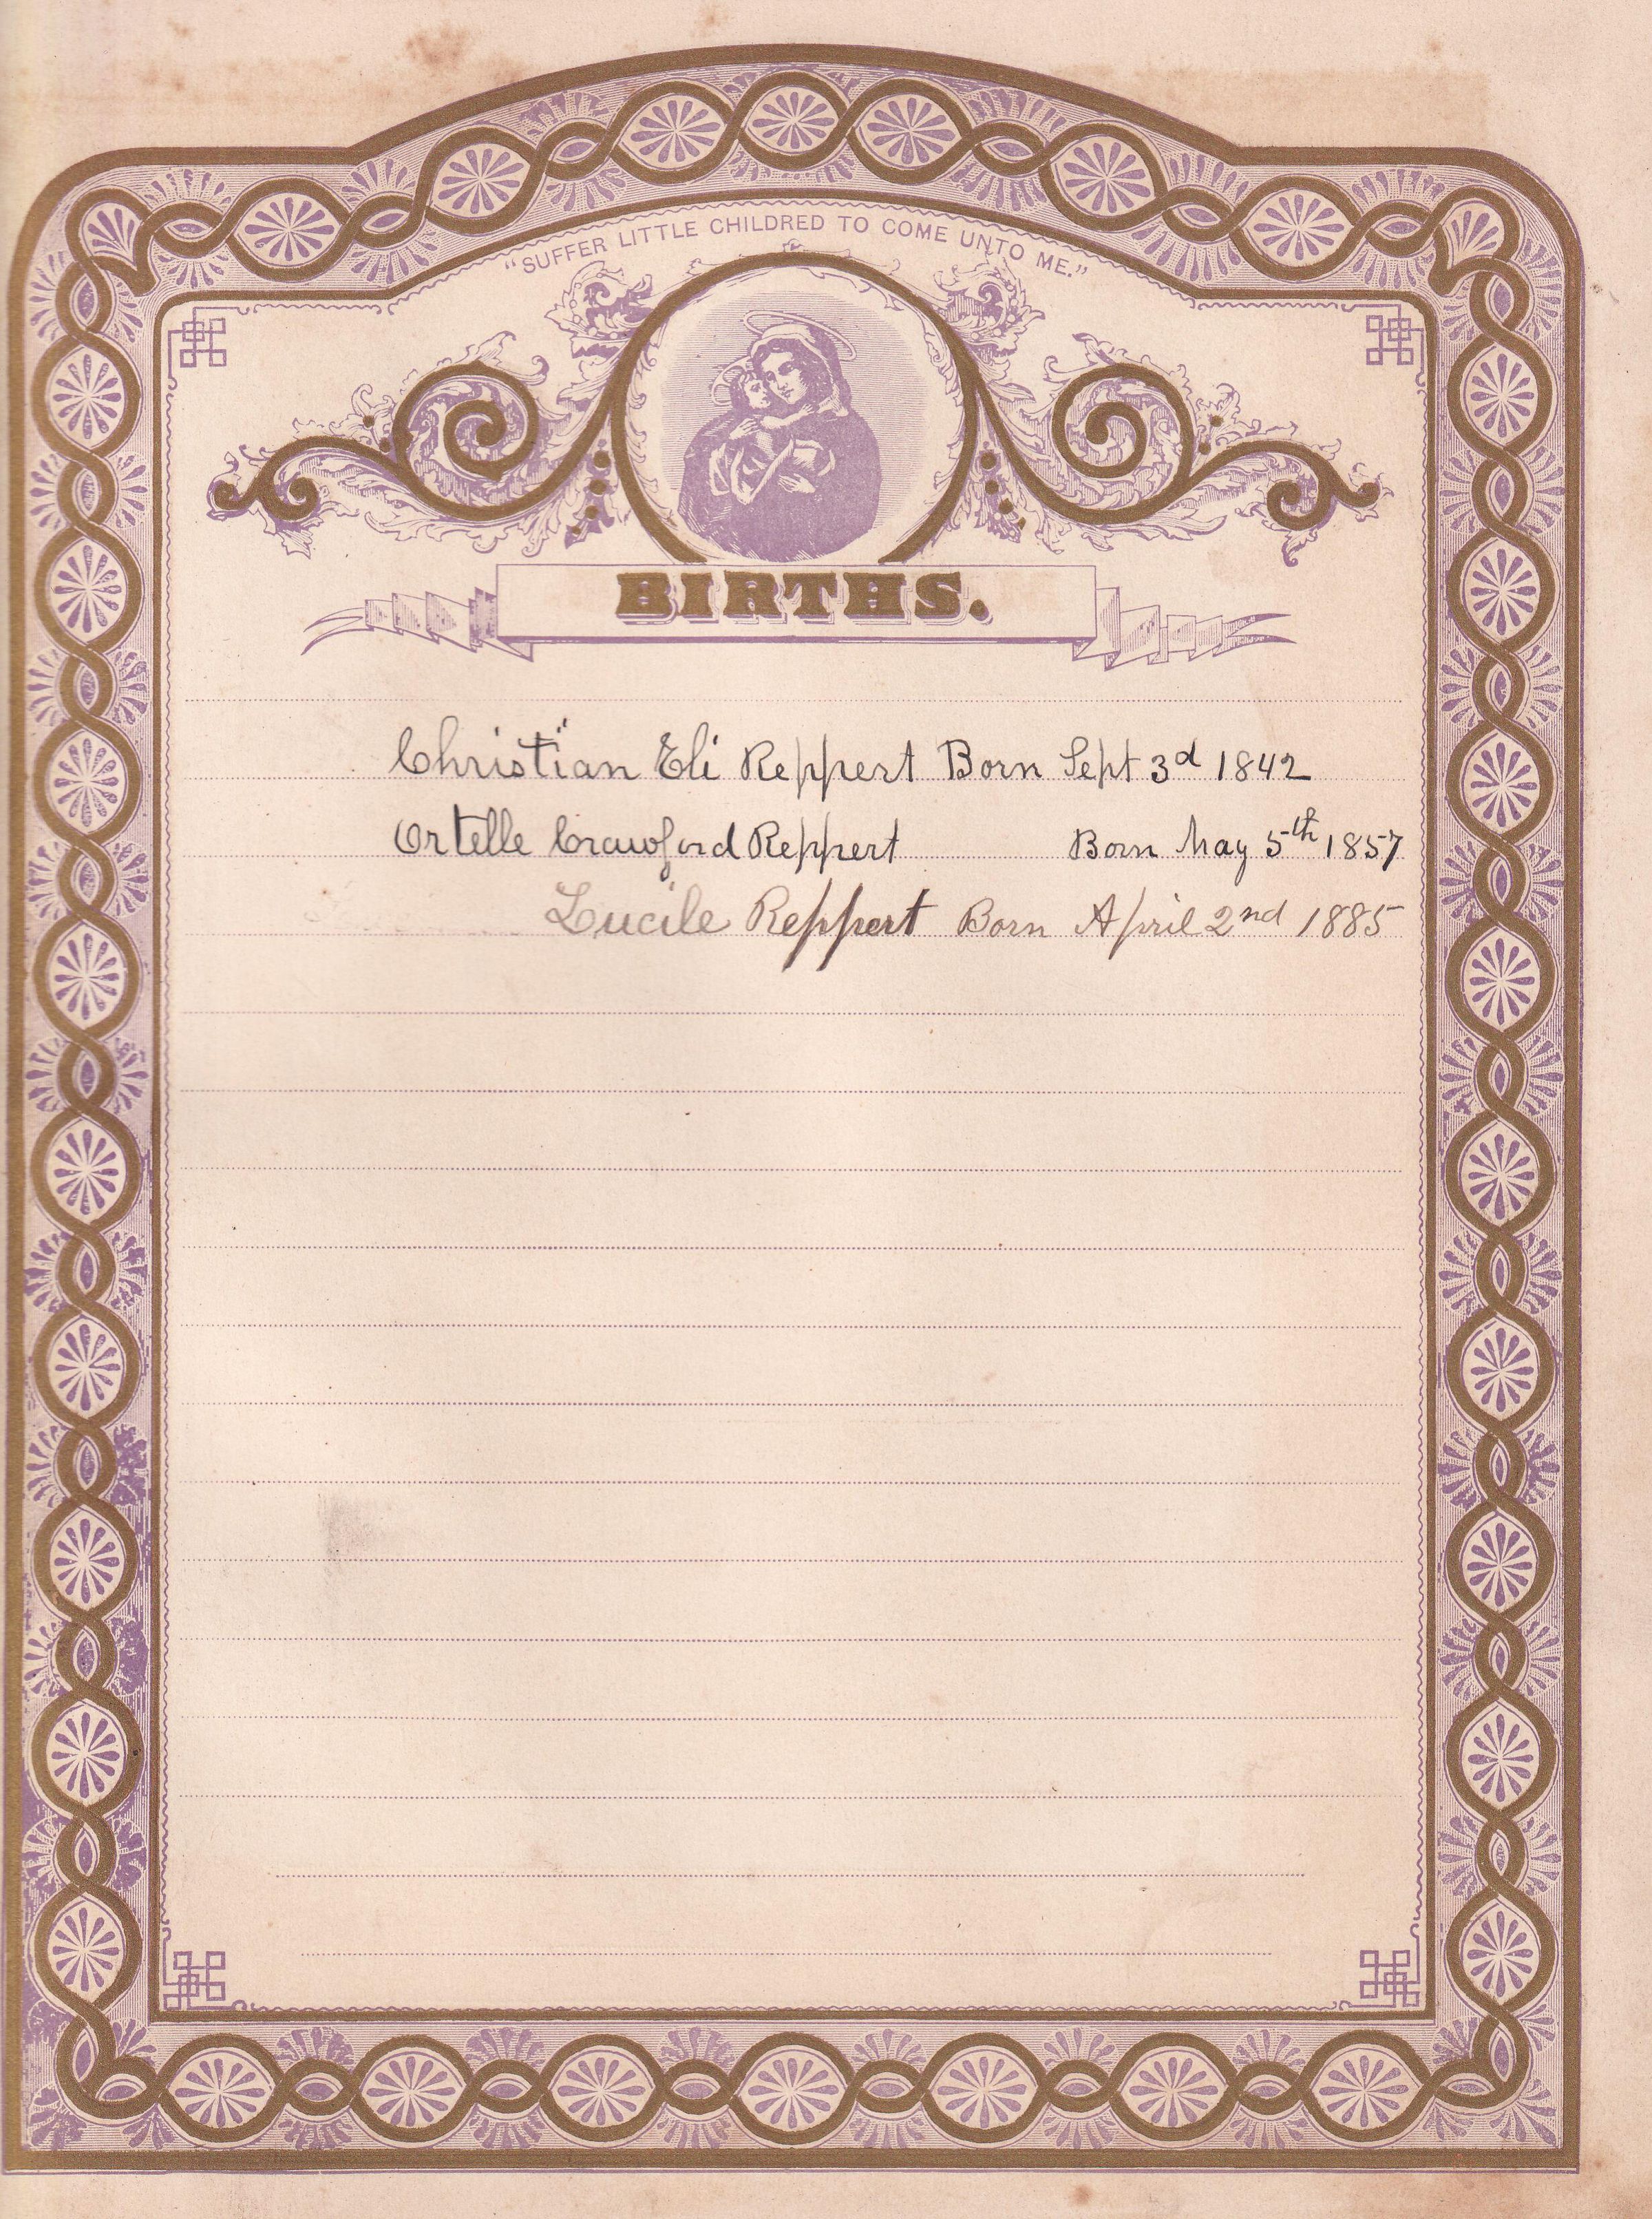 "SUFFER LITTLE CHILDRED TO COME UNTO ME."
BIRTHS.
Christian Eli Reppert Born Sept 3d 1842
Ortelle Crawford Reppert Born May 5th 1857
Lucile Reppert Born April 2nd 1885